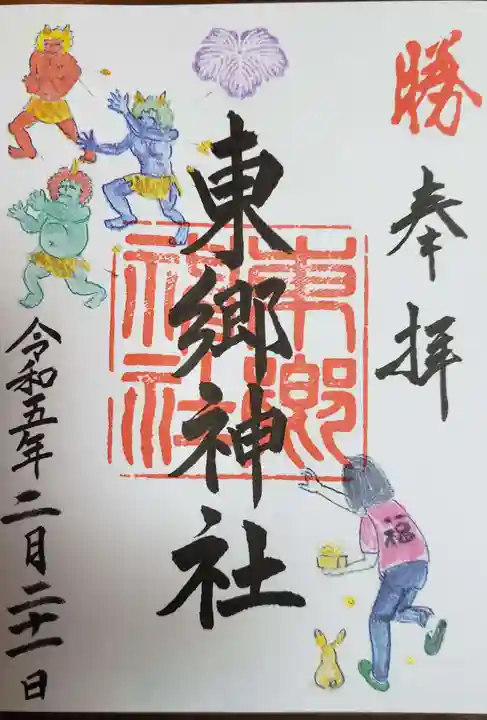 勝
奉拝
東郷神社
東郷
神社
福
令和五年二月二十一日